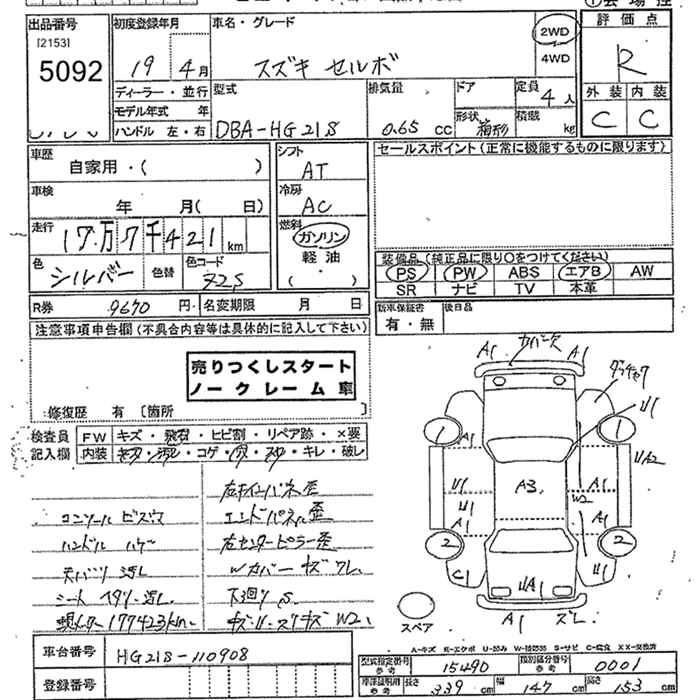 出品番号
[2153]
5092
初度登録年月
19 4月
車名・グレード
スズキ セルボ
2WD
4WD
評価点
R
外装 内装
C C
ディーラー・並行
モデル年式 年
ハンドル 左・右
型式
DBA-HG21S
排気量
0.65 cc
ドア
形状 箱形
定員
4人
積載
kg
車歴
自家用・( )
シフト
AT
冷房
AC
燃料
ガソリン
軽油
( )
車検
年 月( 日)
走行
17万7千421km
色
シルバー
色替
色コード
Z2S
セールスポイント(正常に機能するものに限ります)
装備品(純正品に限り○をつけてください)
PS PW ABS エアB AW
SR ナビ TV 本革
R券 9670円
名変期限 月 日
新車保証書
有・無
後日品
注意事項申告欄(不具合内容等は具体的に記入して下さい)
売りつくしスタート
ノークレーム車
修復歴 有 〔箇所 〕
検査員
記入欄
FW キズ・飛石・ヒビ割・リペア跡・×要
内装 キズ・汚れ・コゲ・穴・スレ・キレ・破レ
コンソール ビスウ
ハンドル ハゲ
天バリ 汚レ
シート ヘタリ・汚レ
現メーター177423km
エンドパネル歪
右センターピラー歪
Wカバー キズ ワレ
下回り S
A1 カバー欠 A1
A1 1 1 U1
U1 UA2
A3 W2
U1 A1 A1
2 2
C1 UA1 U1
A1 ズレ
スペア
A-キズ E-エクボ U-凹み W-補修跡 S-サビ C-腐食 XX-交換済
車台番号 HG21S-110908
登録番号
型式指定番号 参考 15490
類別区分番号 参考 0001
車庫証明用 参考 長さ 339cm 幅 147cm 高さ 153cm